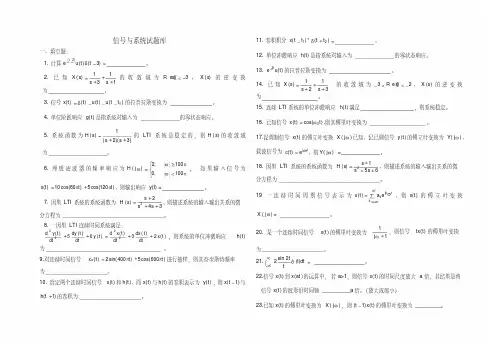 信号与系统试题库
一、填空题:
1. 计算 e^{-(t-2)} u(t) δ(t-3) = 。
2. 已知 X(s) = 1/(s+3) + 1/(s+1) 的收敛域为 Re{s} < -3, X(s) 的逆变换
为 。
3. 信号 x(t) = δ(t) - u(t) - u(t - t₀) 的拉普拉斯变换为 。
4. 单位阶跃响应 是指系统对输入为 的零状态响应。
5. 系统函数为 H(s) = 1/((s+2)(s+3)) 的 LTI 系统是稳定的,则 H(s) 的收敛域
为 。
6. 理想滤波器的频率响应为 H(jω) = { 2, |ω| ≥ 100π; 0, |ω| < 100π , 如果输入信号为
x(t) = 10cos(80πt) + 5cos(120πt) , 则输出响应 y(t) = 。
7. 因果 LTI 系统的系统函数为 H(s) = (s+2)/(s²+4s+3) , 则描述系统的输入输出关系的微
分方程为 。
8. 一因果 LTI 连续时间系统满足:
d²y(t)/dt² + 5 dy(t)/dt + 6y(t) = d²x(t)/dt² + 3 dx(t)/dt + 2x(t) , 则系统的单位冲激响应 h(t)
为 。
9.对连续时间信号 xₐ(t) = 2sin(400πt) + 5cos(600πt) 进行抽样,则其奈奎斯特频率
为 。
10. 给定两个连续时间信号 x(t) 和 h(t), 而 x(t) 与 h(t) 的卷积表示为 y(t) , 则 x(t-1) 与
h(t+1) 的卷积为 。
11. 卷积积分 x(t - t₁) * δ(t + t₂) = 。
12. 单位冲激响应 h(t) 是指系统对输入为 的零状态响应。
13. e^{-2t}u(t) 的拉普拉斯变换为 。
14. 已知 X(s) = 1/(s+2) + 1/(s+3) 的收敛域为 -3 < Re{s} < -2, X(s) 的逆变换
为 。
15. 连续 LTI 系统的单位冲激响应 h(t) 满足 , 则系统稳定。
16. 已知信号 x(t) = cos(ω₀t), 则其傅里叶变换为 。
17.设调制信号 x(t) 的傅立叶变换 X(jω) 已知, 记已调信号 y(t) 的傅立叶变换为 Y(jω) ,
载波信号为 , 则 Y(jω) = 。
18. 因果 LTI 系统的系统函数为 H(s) = (s+1)/(s²+5s+6) , 则描述系统的输入输出关系的微
分方程为 。
19 一连续时间周期信号表示为 , 则 x(t) 的傅立叶变换
X(jω) = 。
20. 某一个连续时间信号 x(t) 的傅里叶变换为 1/(jω+1) , 则信号 tx(t) 的傅里叶变换
为 。
21. ∫_{-∞}^{∞} 2 (sin 2t)/t δ(t)dt = 。
22.信号 x(t) 到 x(at) 的运算中, 若 a>1, 则信号 x(t) 的时间尺度放大 a 倍, 其结果是将
信号 x(t) 的波形沿时间轴 a 倍。(放大或缩小)
23.已知 x(t) 的傅里叶变换为 X(jω) , 则 (t-1)x(t) 的傅里叶变换为 。